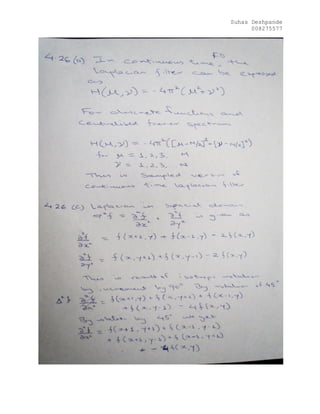 Suhas Deshpande
008275577
4.26 (a) In continuous time, FS the
Laplacian filter can be expressed
as
H(μ,ν) = -4π²(μ²+ν²)
For discrete functions and
centralised fourier spectrum
H(μ,ν) = -4π²([μ-M/2]²+[ν-N/2]²)
for μ = 1,2,3, M
ν = 1,2,3, N
This is Sampled version of
continuous time laplacian filter
4.26 (c) Laplacian in spatial domain
∇²f = ∂²f/∂x² + ∂²f/∂y² is given as
∂²f/∂x² = f(x+1,y) + f(x-1,y) - 2f(x,y)
∂²f/∂y² = f(x,y+1) + f(x,y-1) - 2f(x,y)
This is result of isotropic rotation
by increment by 90° By rotation of 45°
= f(x+1,y) + f(x,y+1) + f(x-1,y)
+ f(x,y-1) - 4f(x,y)
By rotation by 45° we get
= f(x+1,y+1) + f(x-1,y-1)
+ f(x+1,y-1) + f(x-1,y+1)
- 4f(x,y)